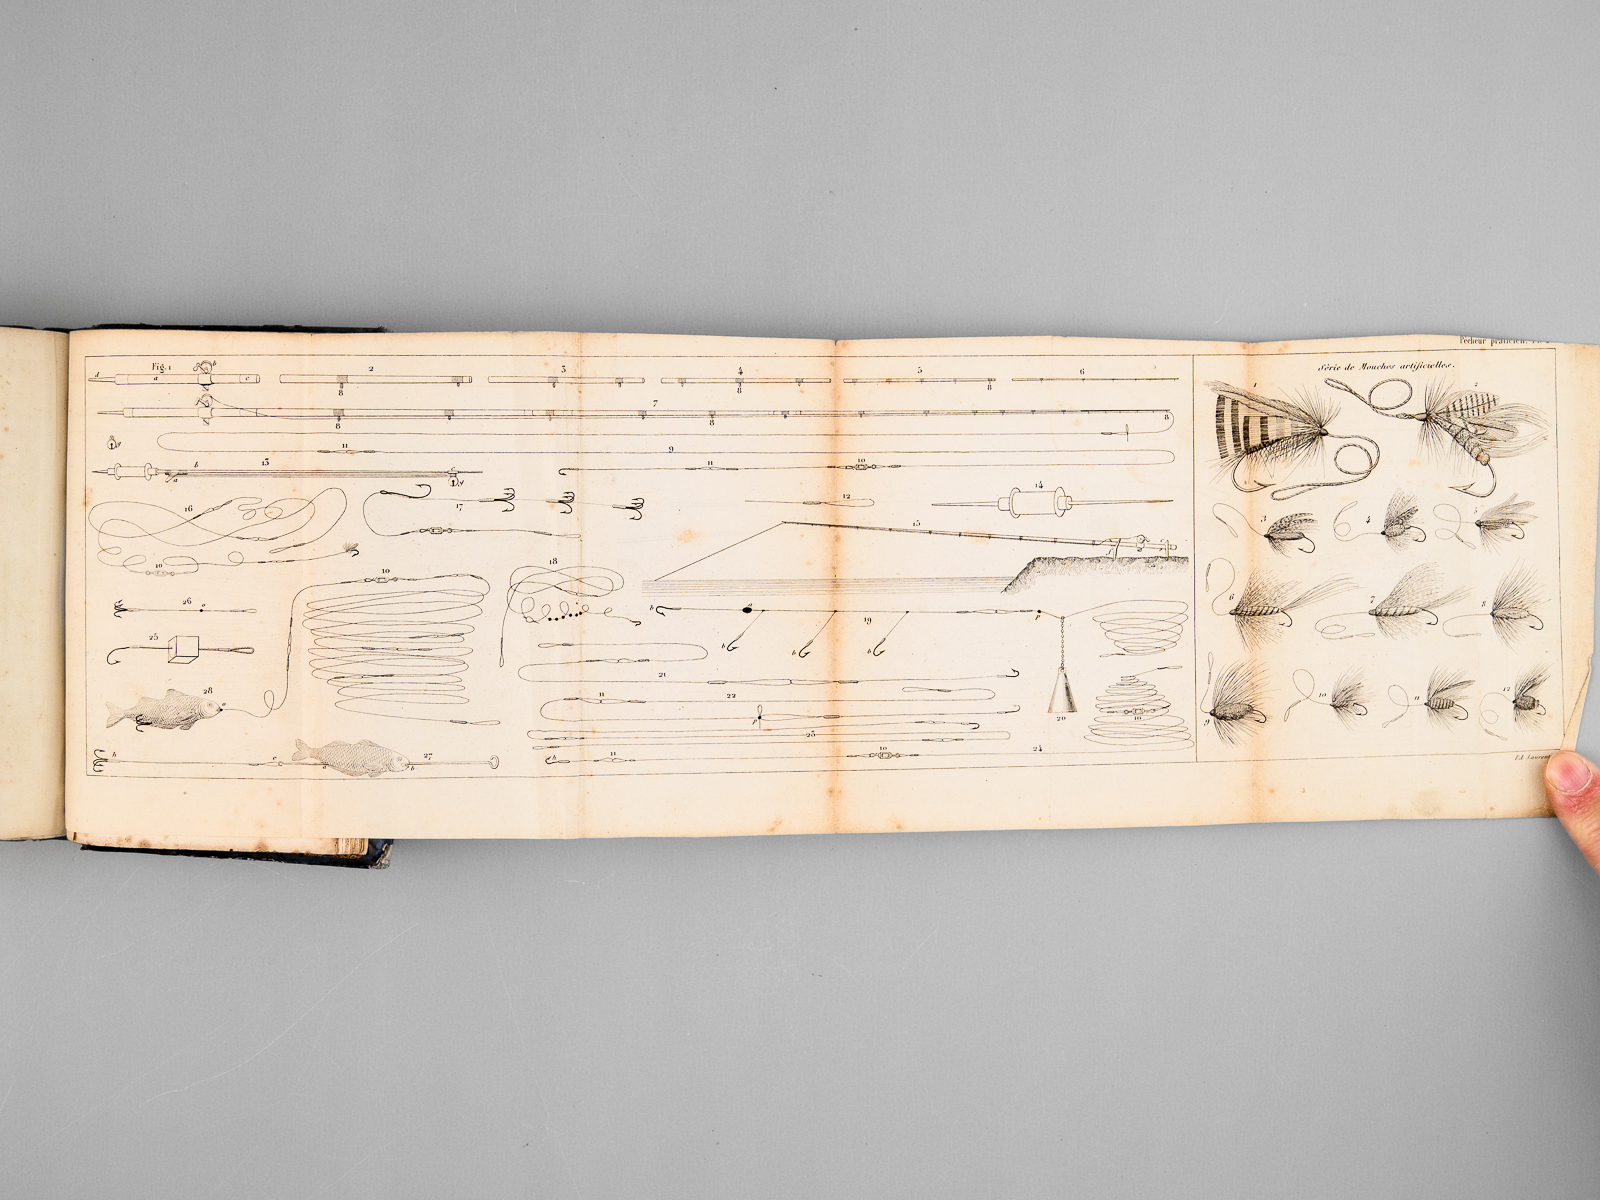 Pêcheur praticien.
Fig. 1
2
3
4
5
6
d
a
b
c
8
8
8
8
8
7
8
8
8
11
9
11
10
13
b
a
g
g
12
14
16
17
15
10
10
18
26
a
25
28
b
a
19
b
b
b
p
21
11
22
p
23
20
10
24
11
b
10
h
c
a
27
b
Série de Mouches artificielles.
1
2
3
4
5
6
7
8
9
10
11
12
Ed. Laurent